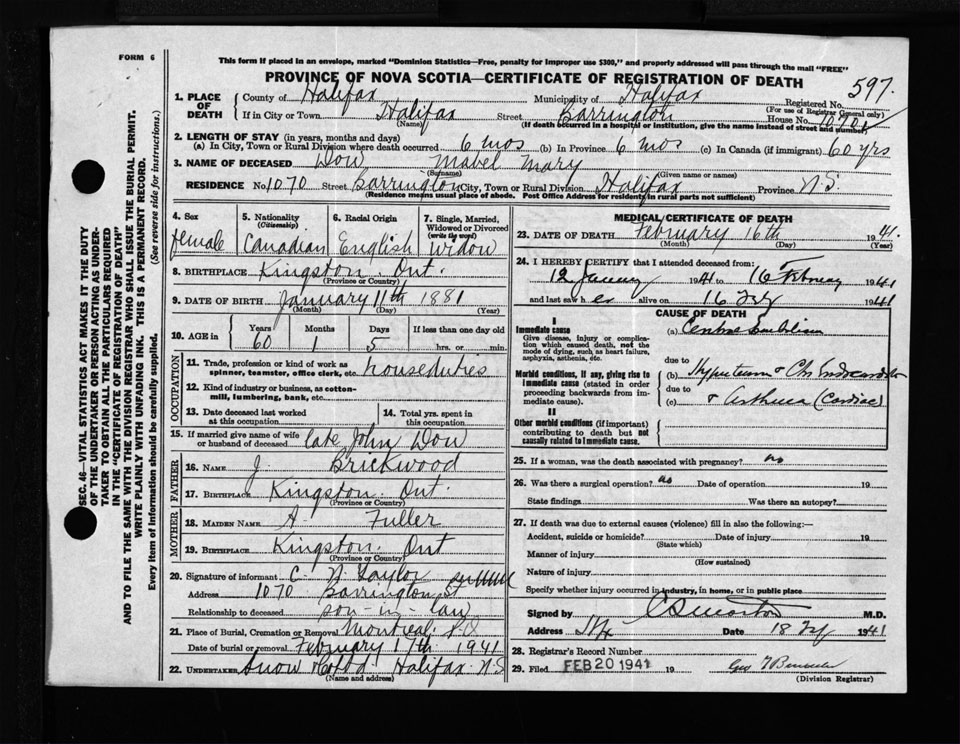 FORM 6
This form if placed in an envelope, marked "Dominion Statistics—Free, penalty for improper use $300," and properly addressed will pass through the mail "FREE"
PROVINCE OF NOVA SCOTIA—CERTIFICATE OF REGISTRATION OF DEATH
597.
SEC. 46—VITAL STATISTICS ACT MAKES IT THE DUTY
OF THE UNDERTAKER OR PERSON ACTING AS UNDER-
TAKER TO OBTAIN ALL THE PARTICULARS REQUIRED
IN THE "CERTIFICATE OF REGISTRATION OF DEATH"
AND TO FILE THE SAME WITH THE DIVISION REGISTRAR WHO SHALL ISSUE THE BURIAL PERMIT.
WRITE PLAINLY WITH UNFADING INK. THIS IS A PERMANENT RECORD.
Every item of information should be carefully supplied. (See reverse side for instructions.)
1. PLACE OF DEATH County of Halifax Municipality of Halifax Registered No.
(For use of Registrar General only)
If in City or Town Halifax Street Barrington House No. 1070
(Name) (If death occurred in a hospital or institution, give the name instead of street and number)
2. LENGTH OF STAY (in years, months and days)
(a) In City, Town or Rural Division where death occurred 6 mos (b) In Province 6 mos (c) In Canada (if immigrant) 60 yrs
3. NAME OF DECEASED Dow Mabel Mary
(Surname) (Given name or names)
RESIDENCE No. 1070 Street Barrington City, Town or Rural Division Halifax Province N.S.
(Residence means usual place of abode. Post Office Address for residents in rural parts not sufficient)
4. Sex female
5. Nationality (Citizenship) Canadian
6. Racial Origin English
7. Single, Married, Widowed or Divorced (write the word) Widow
8. BIRTHPLACE Kingston. Ont.
(Province or Country)
9. DATE OF BIRTH January 11th 1881
(Month) (Day) (Year)
10. AGE in Years 60 Months 1 Days 5 If less than one day old hrs. or min.
OCCUPATION
11. Trade, profession or kind of work as spinner, teamster, office clerk, etc. housedutíes
12. Kind of industry or business, as cotton-mill, lumbering, bank, etc.
13. Date deceased last worked at this occupation
14. Total yrs. spent in this occupation
15. If married give name of wife or husband of deceased late John Dow
FATHER
16. NAME J. Brickwood
17. BIRTHPLACE Kingston. Ont.
(Province or Country)
MOTHER
18. MAIDEN NAME A. Fuller
19. BIRTHPLACE Kingston. Ont
(Province or Country)
20. Signature of informant C. N. Taylor
Address 1070 Barrington St
Relationship to deceased son-in-law
21. Place of Burial, Cremation or Removal Montreal. P.Q.
Date of burial or removal February 17th. 1941
22. UNDERTAKER Snow & Co Ltd Halifax N.S.
(Name and address)
MEDICAL CERTIFICATE OF DEATH
23. DATE OF DEATH February 16th 1941.
(Month) (Day) (Year)
24. I HEREBY CERTIFY that I attended deceased from:
12 January 1941 to 16 February 1941
and last saw her alive on 16 Feb 1941
CAUSE OF DEATH
I
Immediate cause
Give disease, injury or complication which caused death, not the mode of dying, such as heart failure, asphyxia, asthenia, etc.
(a)
due to
Morbid conditions, if any, giving rise to immediate cause (stated in order proceeding backwards from immediate cause).
(b)
due to
(c) & Asthma (Cardiac)
II
Other morbid conditions (if important) contributing to death but not causally related to immediate cause.
25. If a woman, was the death associated with pregnancy? no
26. Was there a surgical operation? no Date of operation 19
State findings Was there an autopsy?
27. If death was due to external causes (violence) fill in also the following:—
Accident, suicide or homicide? Date of injury 19
(State which)
Manner of injury
(How sustained)
Nature of injury
Specify whether injury occurred in industry, in home, or in public place
Signed by M.D.
Address Hfx Date 18 Feb 1941
28. Registrar's Record Number
29. Filed FEB 20 1941 19
(Division Registrar)